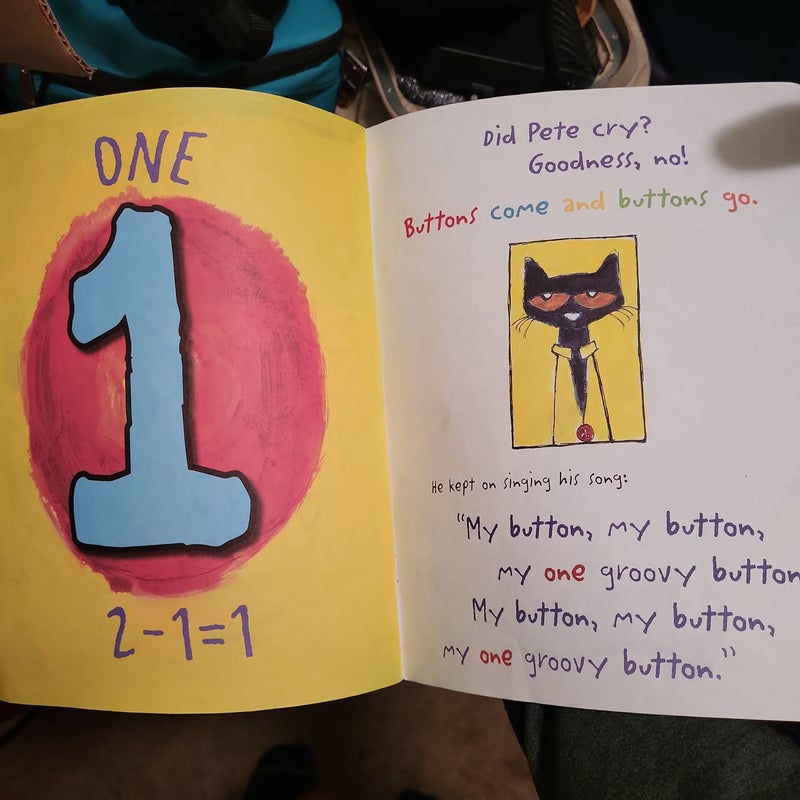 ONE
1
2-1=1
Did Pete cry?
Goodness, no!
Buttons come and buttons go.
He kept on singing his song:
"My button, my button,
my one groovy button
My button, my button,
my one groovy button."